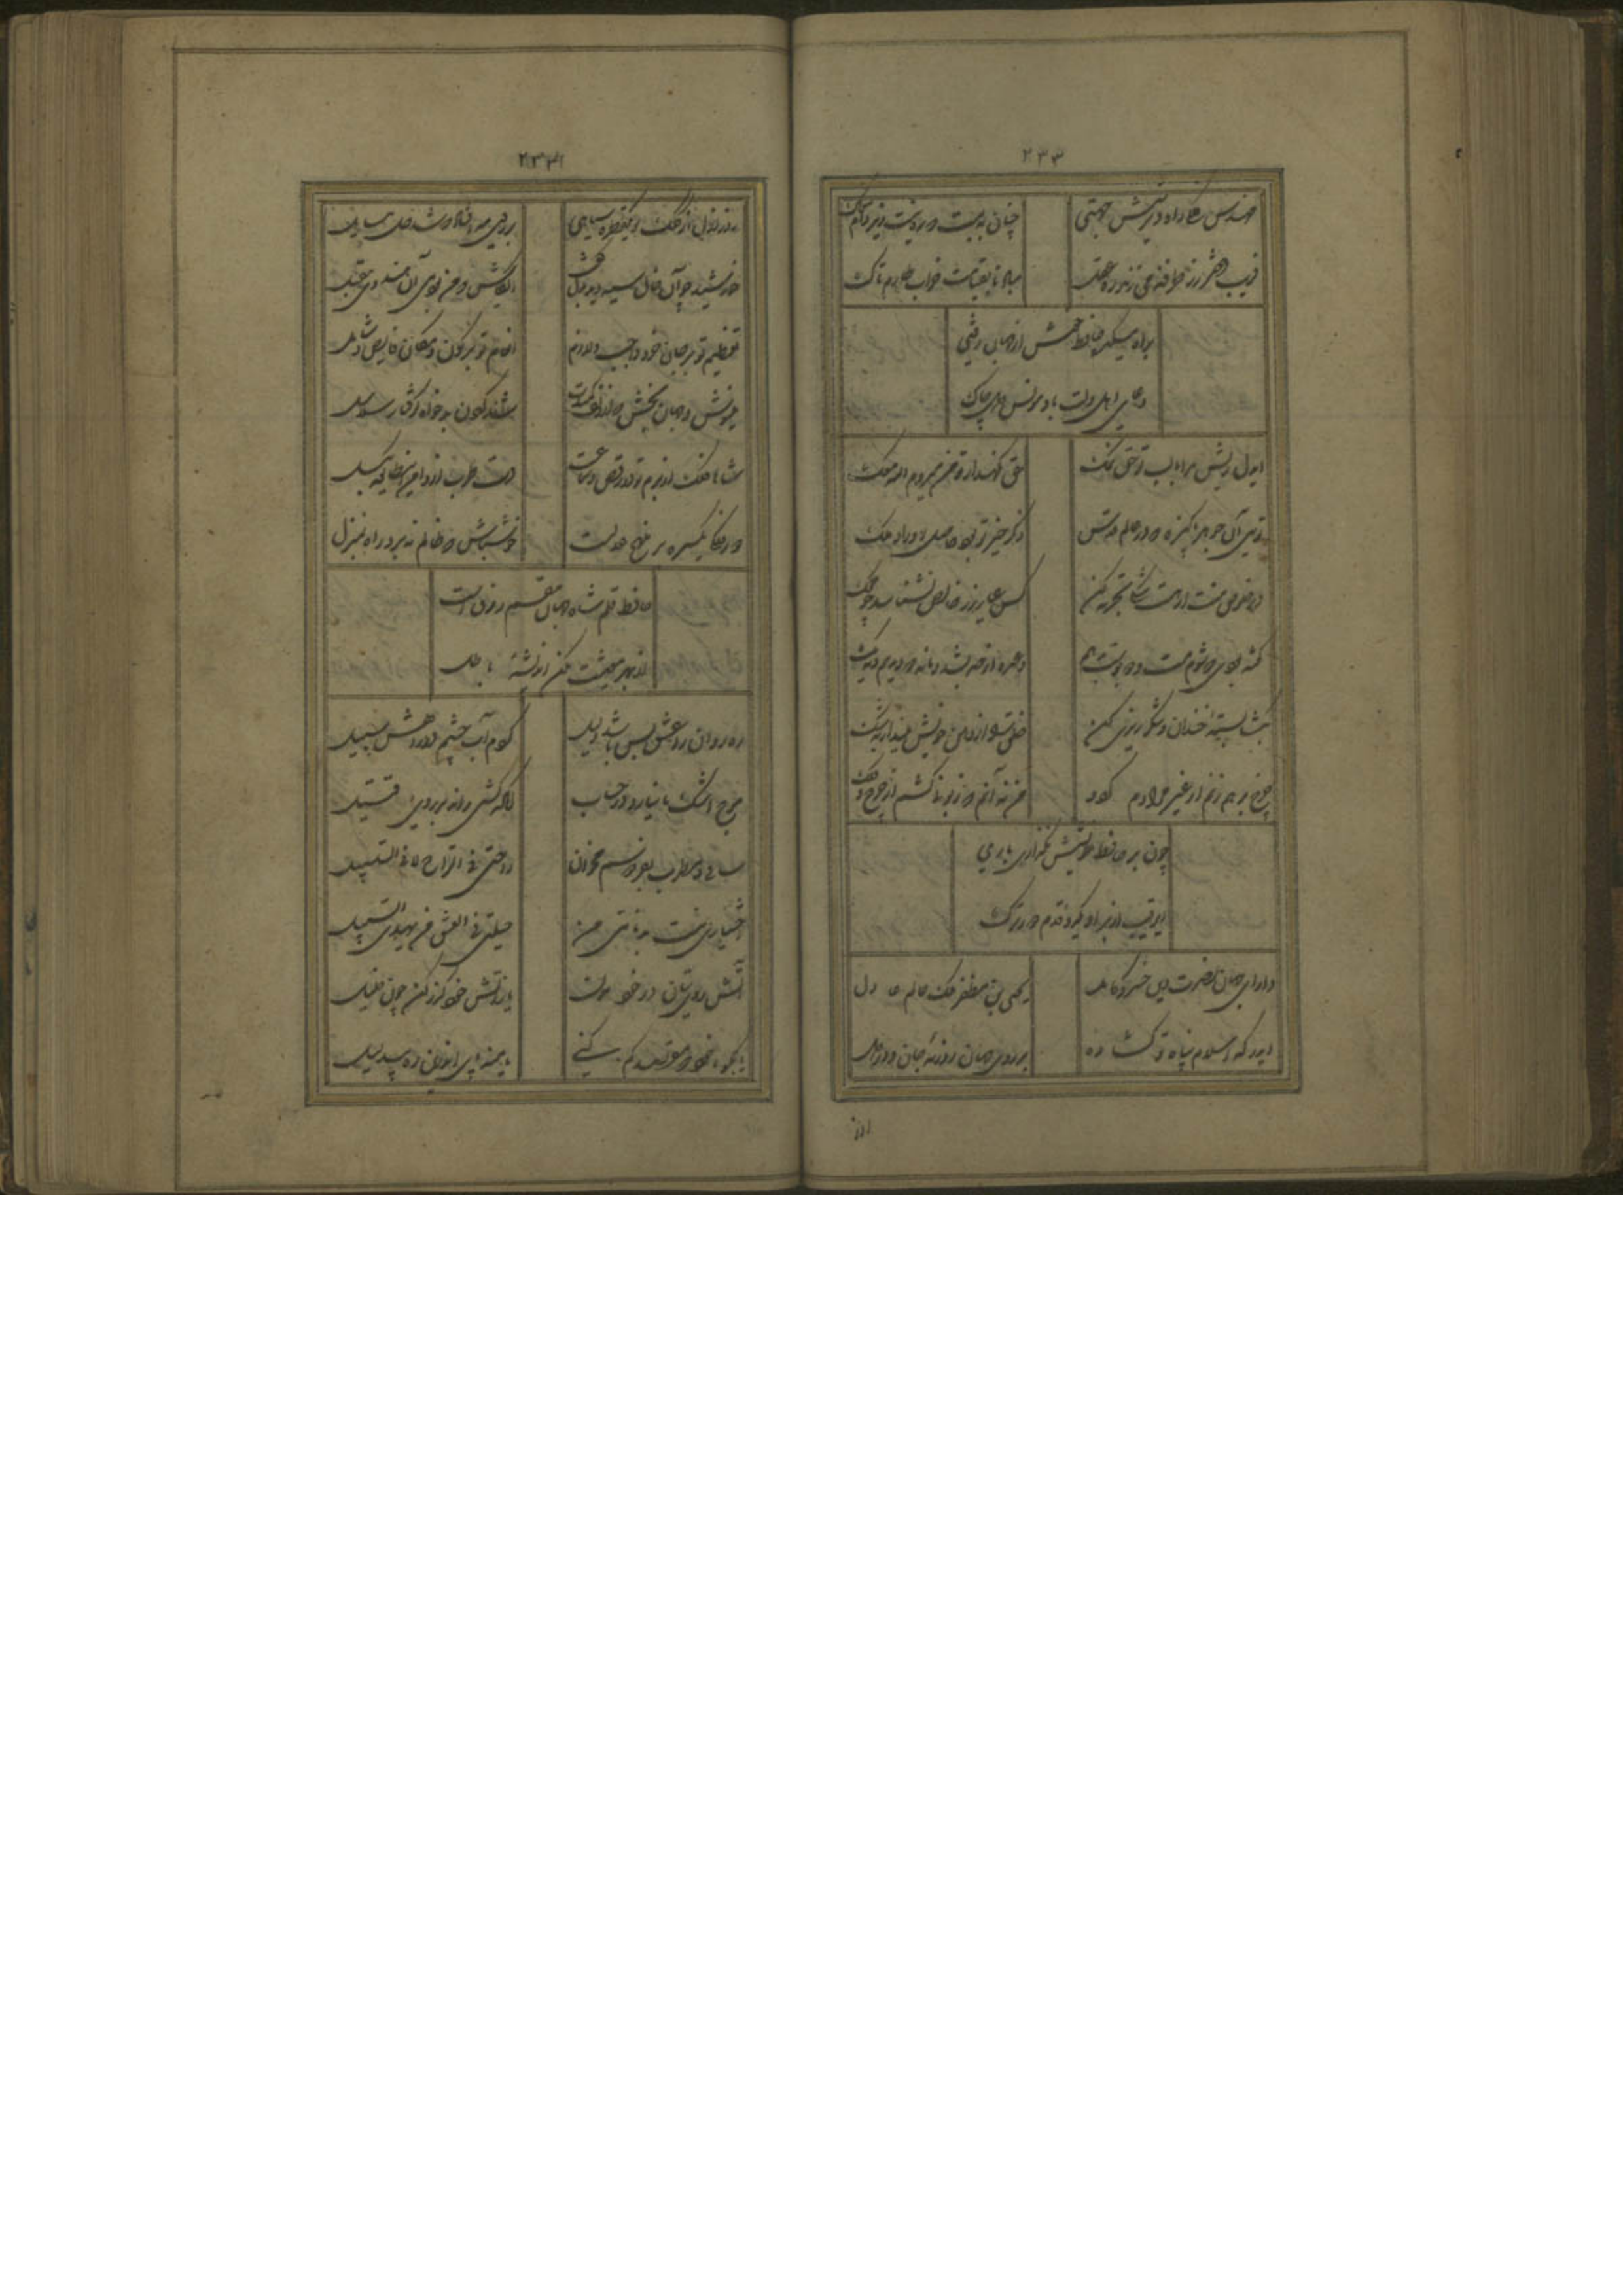 ۲۳۳
مهندس فلکی راه دیر شش جهتی چنان ببست که ره نیست زیر دام مغاک
فریب دختر رز طرفه می زند ره عقل مباد تا بقیامت خراب طارم تاک
براه میکده حافظ خوش از جهان رفتی
دعای اهل دلت باد مونس دل پاک
ایدل ریش مرا با لب تو حق نمک حق نگهدار که من میروم الله معک
توئی آن جوهر پاکیزه که در عالم قدس ذکر خیر تو بود حاصل اوراد ملک
در خلوص منت ار هست شکی تجربه کن کس عیار زر خالص نشناسد چو محک
گفته بودی که شوم مست و دو بوست بدهم وعده از حد بشد و ما نه دو دیدیم و نه یک
بگشا پسته خندان و شکر ریزی کن خلق را از دهن خویش مینداز بشک
چرخ برهم زنم ار غیر مرادم گردد من نه آنم که زبونی کشم از چرخ فلک
چون بر حافظ خویشش نگذاری باری
ای رقیب از بر او یکدو قدم دورترک
دارای جهان نصرت دین خسرو کامل یحیی بن مظفر ملک عالم عادل
ای درگه اسلام پناه تو گشاده بر روی جهان روزنه جان و در دل
روز ازل از کلک تو یکقطره سیاهی بر روی مه افتاد که شد حل مسایل
خورشید چو آن خال سیه دید بدل گفت ایکاش که من بودمی آن هندوی مقبل
تعظیم تو بر جان خرد واجب و لازم انعام تو بر کون و مکان فایض و شامل
می نوش و جهان بخش که از زلف کمندت شد گردن بدخواه گرفتار سلاسل
شاها فلک از بزم تو در رقص و سماعست دست طرب از دامن این مگسل
دور فلکی یکسره بر منهج عدلست خوشباش که ظالم نبرد راه بمنزل
حافظ قلم شاه جهان مقسم رزق است
از بهر معیشت مکن اندیشه باطل
رهروان را عشق بس باشد دلیل کردم آب چشم اندر رهش سبیل
موج اشک ما نیارد در حساب آنکه کشتی راند بر روی قتیل
اختیاری نیست بدنامی من ضلنی فی العشق من یهدی السبیل
آتش روی بتان در خود مزن یا در آتش خوش گذر کن چون خلیل
یا بنه پی اندرین ره بیدلیل